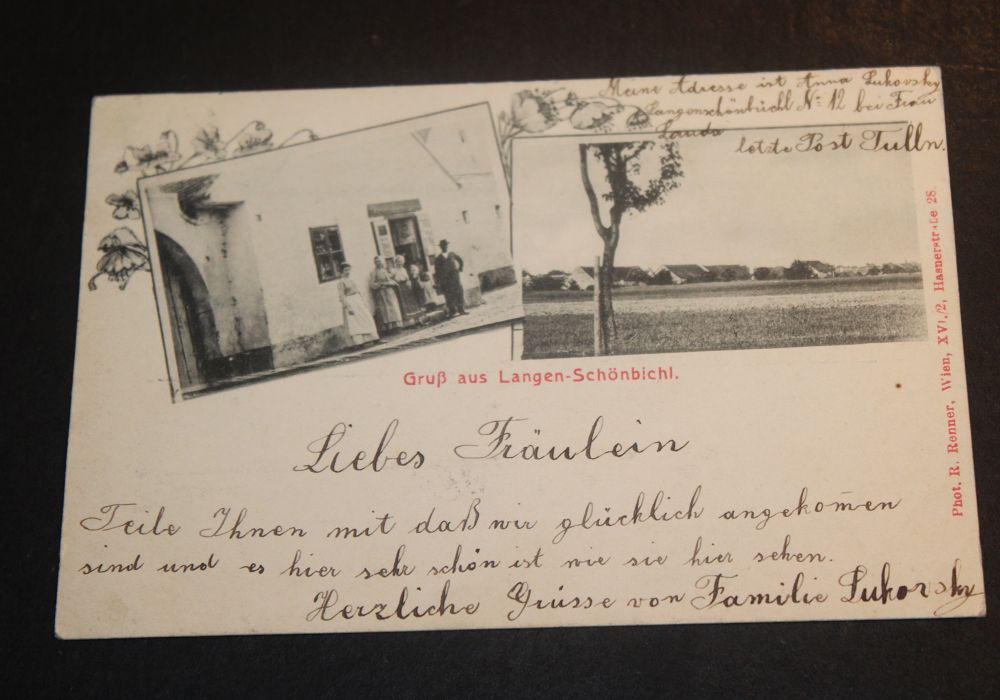 Meine Adresse ist Anna Lukovsky
Langenschönbüchl No 12 bei Frau
Lauda
letzte Post Tulln.
Gruß aus Langen-Schönbichl.
Phot. R. Renner, Wien, XVI./2, Hasnerstraße 28.
Liebes Fräulein
Teile Ihnen mit daß wir glücklich angekom̄en
sind und es hier sehr schön ist wie sie hier sehen.
Herzliche Grüsse von Familie Lukovsky